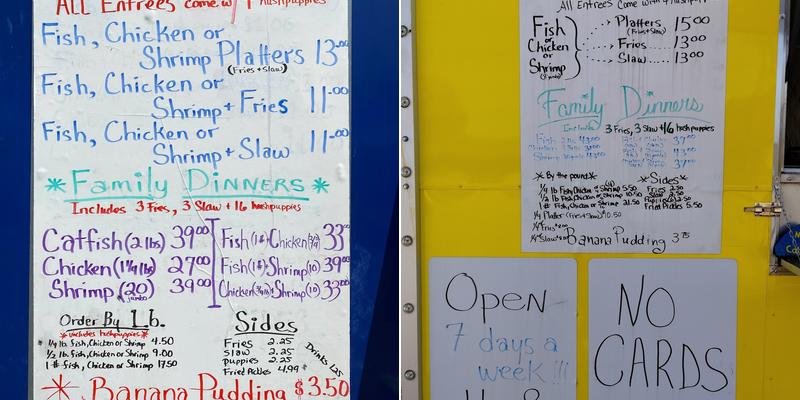 ALL Entrees come w/ 7 hushpuppies
Fish, Chicken or
Shrimp Platters 13.00
(Fries + slaw)
Fish, Chicken or
Shrimp + Fries 11.00
Fish, Chicken or
Shrimp + Slaw 11.00
*Family Dinners*
Includes 3 Fries, 3 Slaw + 16 hushpuppies
Catfish (2 lbs) 39.00
Chicken (1 1/4 lbs) 27.00
Shrimp (20) 39.00
jumbo
Fish (1#) Chicken (3/4) 33.00
Fish (1#) Shrimp (10) 39.00
Chicken (3/4 lb) Shrimp (10) 33.00
Order By Lb.
*includes hushpuppies*
1/4 lb fish, Chicken or Shrimp 4.50
1/2 lb. fish, Chicken or Shrimp 9.00
1 # fish, Chicken or Shrimp 17.50
Sides
Fries 2.25
slaw 2.25
puppies 2.25
Fried Pickles 4.99
Drinks 1.25
* Banana Pudding $3.50
All Entrees Come with
Fish or Chicken or Shrimp
Platters 15.00
(Fries + Slaw)
Fries 13.00
Slaw 13.00
Family Dinners
Includes 3 Fries, 3 Slaw + 16 hushpuppies
37.00
43.00
37.00
* By the pound *
*Sides*
Fries
Fried Pickles 5.50
1/4 Platter (Fries + Slaw) 10.50
Banana Pudding 3.75
Open
7 days a
week!!!
NO
CARDS